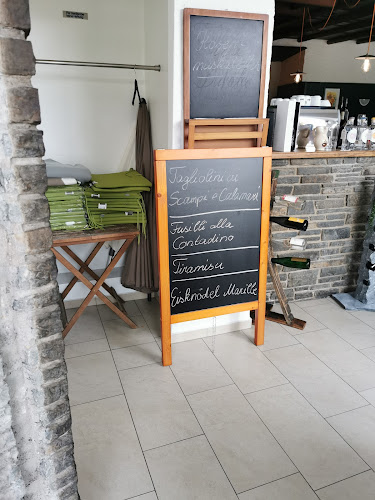 Tagliolini ai
Scampi e Calamari
Fusilli alla
Contadina
Tiramisu
Eisknödel Marille